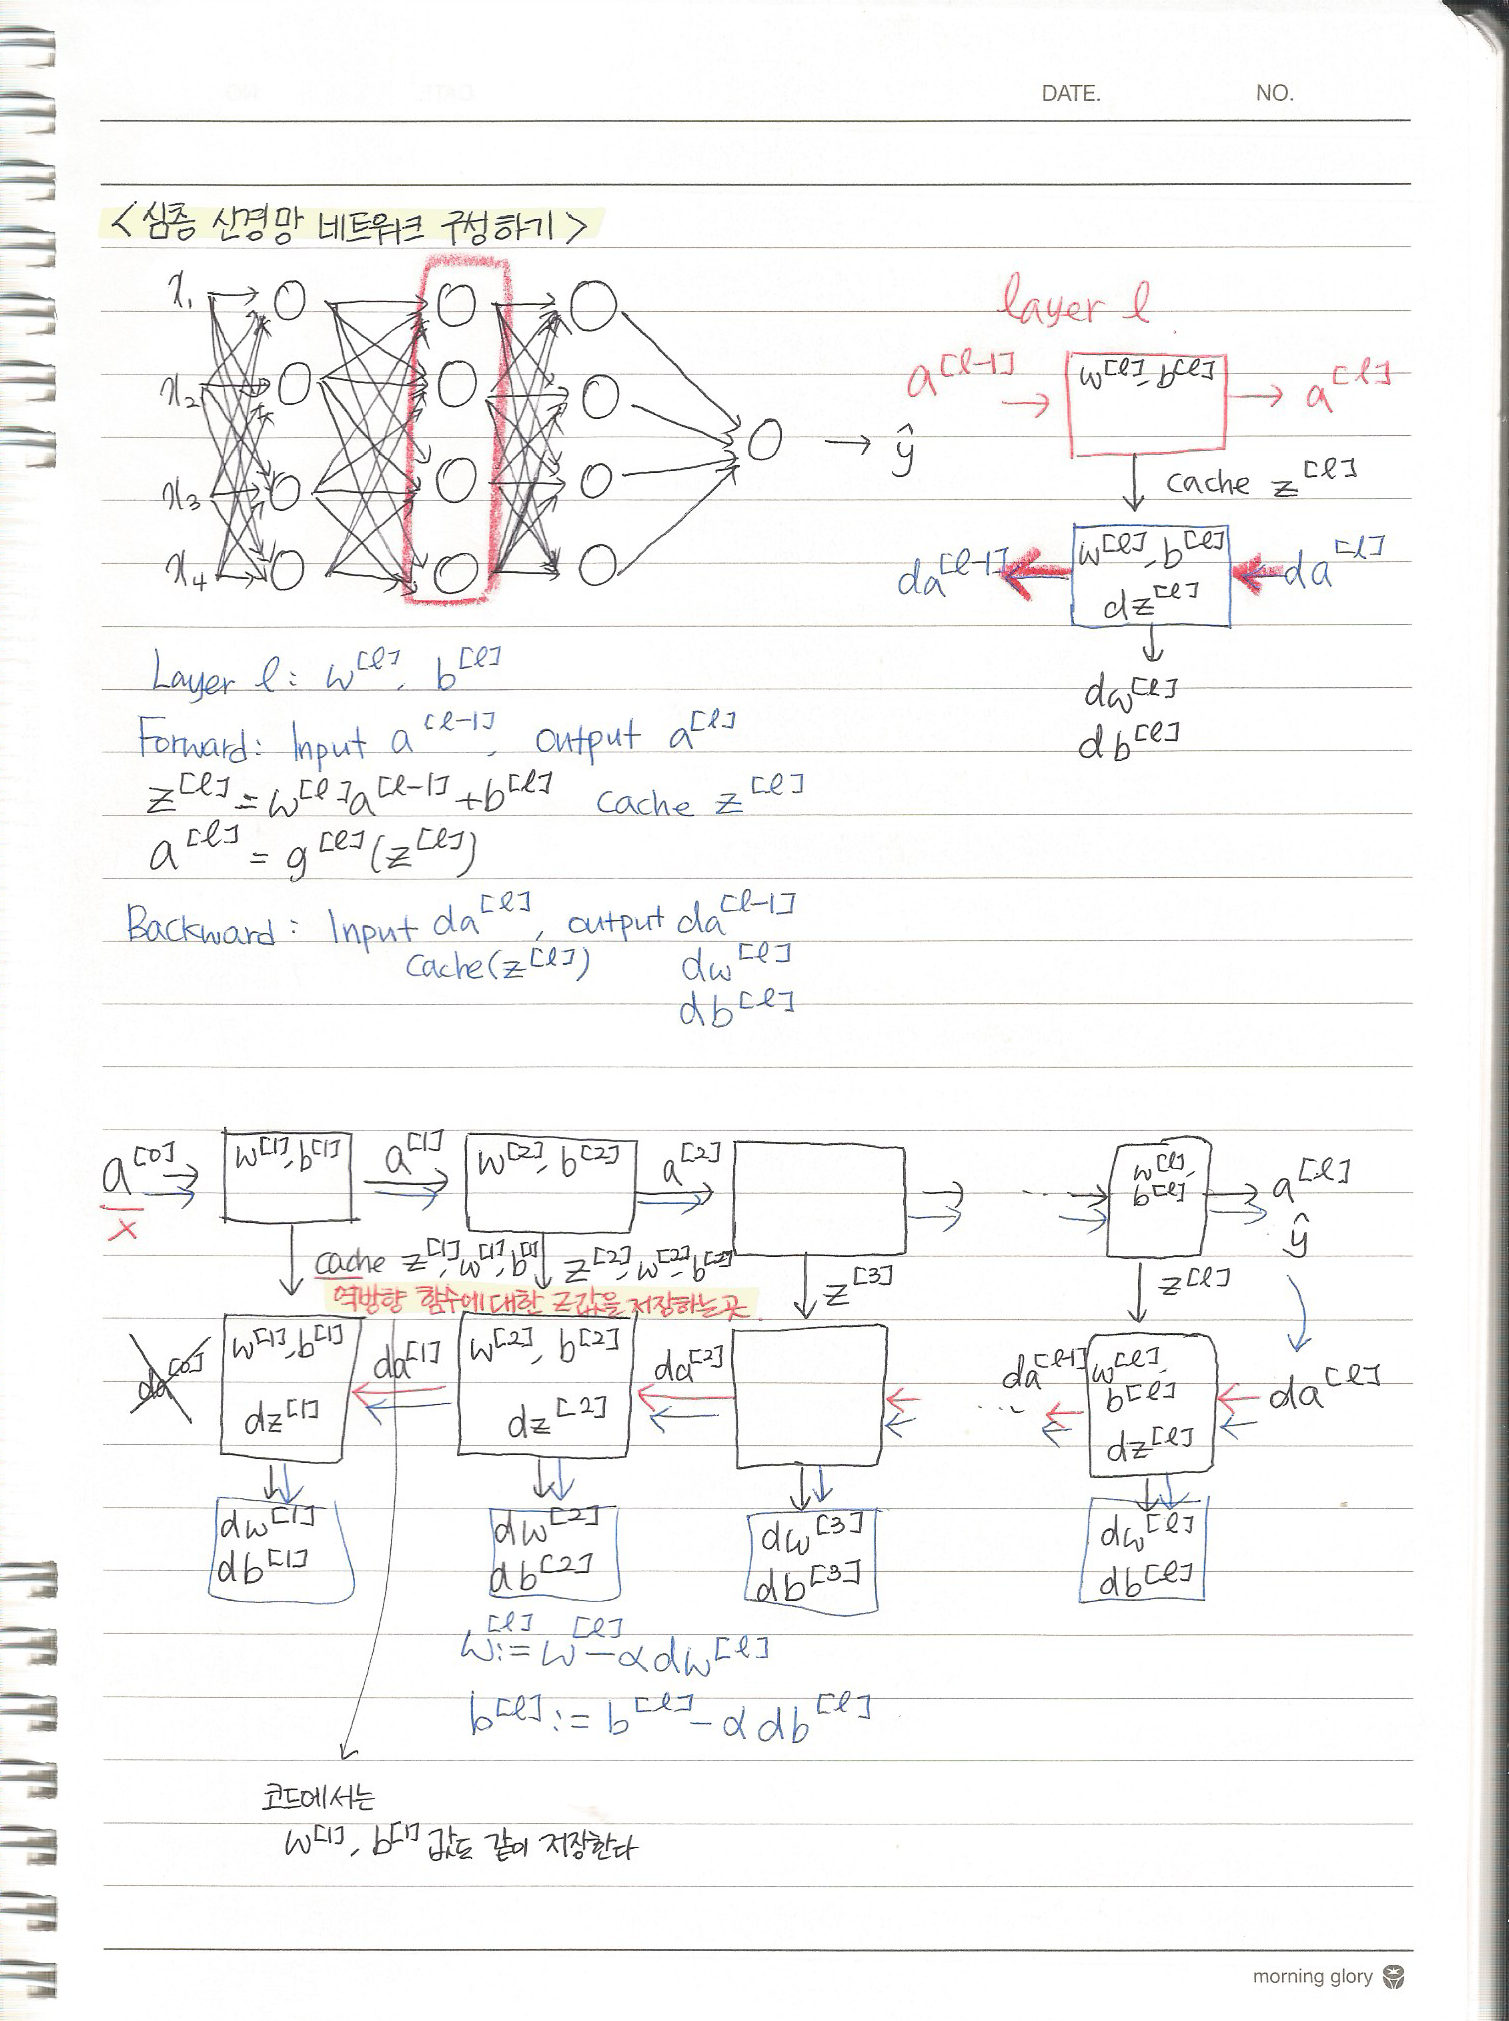 DATE. NO.
<심층 신경망 네트워크 구성하기>
x₁
x₂
x₃
x₄
ŷ
layer l
a^[l-1] → w^[l], b^[l] → a^[l]
cache z^[l]
da^[l-1] ← w^[l], b^[l] ← da^[l]
dz^[l]
dw^[l]
db^[l]
Layer l: w^[l], b^[l]
Forward: Input a^[l-1], output a^[l]
z^[l] = w^[l]a^[l-1] + b^[l] cache z^[l]
a^[l] = g^[l](z^[l])
Backward: Input da^[l], output da^[l-1]
cache(z^[l]) dw^[l]
db^[l]
a^[0] → w^[1], b^[1] → a^[1] → w^[2], b^[2] → a^[2] → → ... → w^[l], b^[l] → a^[l]
x
ŷ
cache z^[1], w^[1], b^[1] z^[2], w^[2], b^[2] z^[3] z^[l]
역방향 함수에 대한 Z값을 저장하는 곳.
da^[0] w^[1], b^[1] da^[1] w^[2], b^[2] da^[2] ... da^[l-1] w^[l], b^[l] da^[l]
dz^[1] dz^[2] dz^[l]
dw^[1] dw^[2] dw^[3] dw^[l]
db^[1] db^[2] db^[3] db^[l]
w^[l] := w^[l] - α dw^[l]
b^[l] := b^[l] - α db^[l]
코드에서는
w^[1], b^[1] 값도 같이 저장한다
morning glory